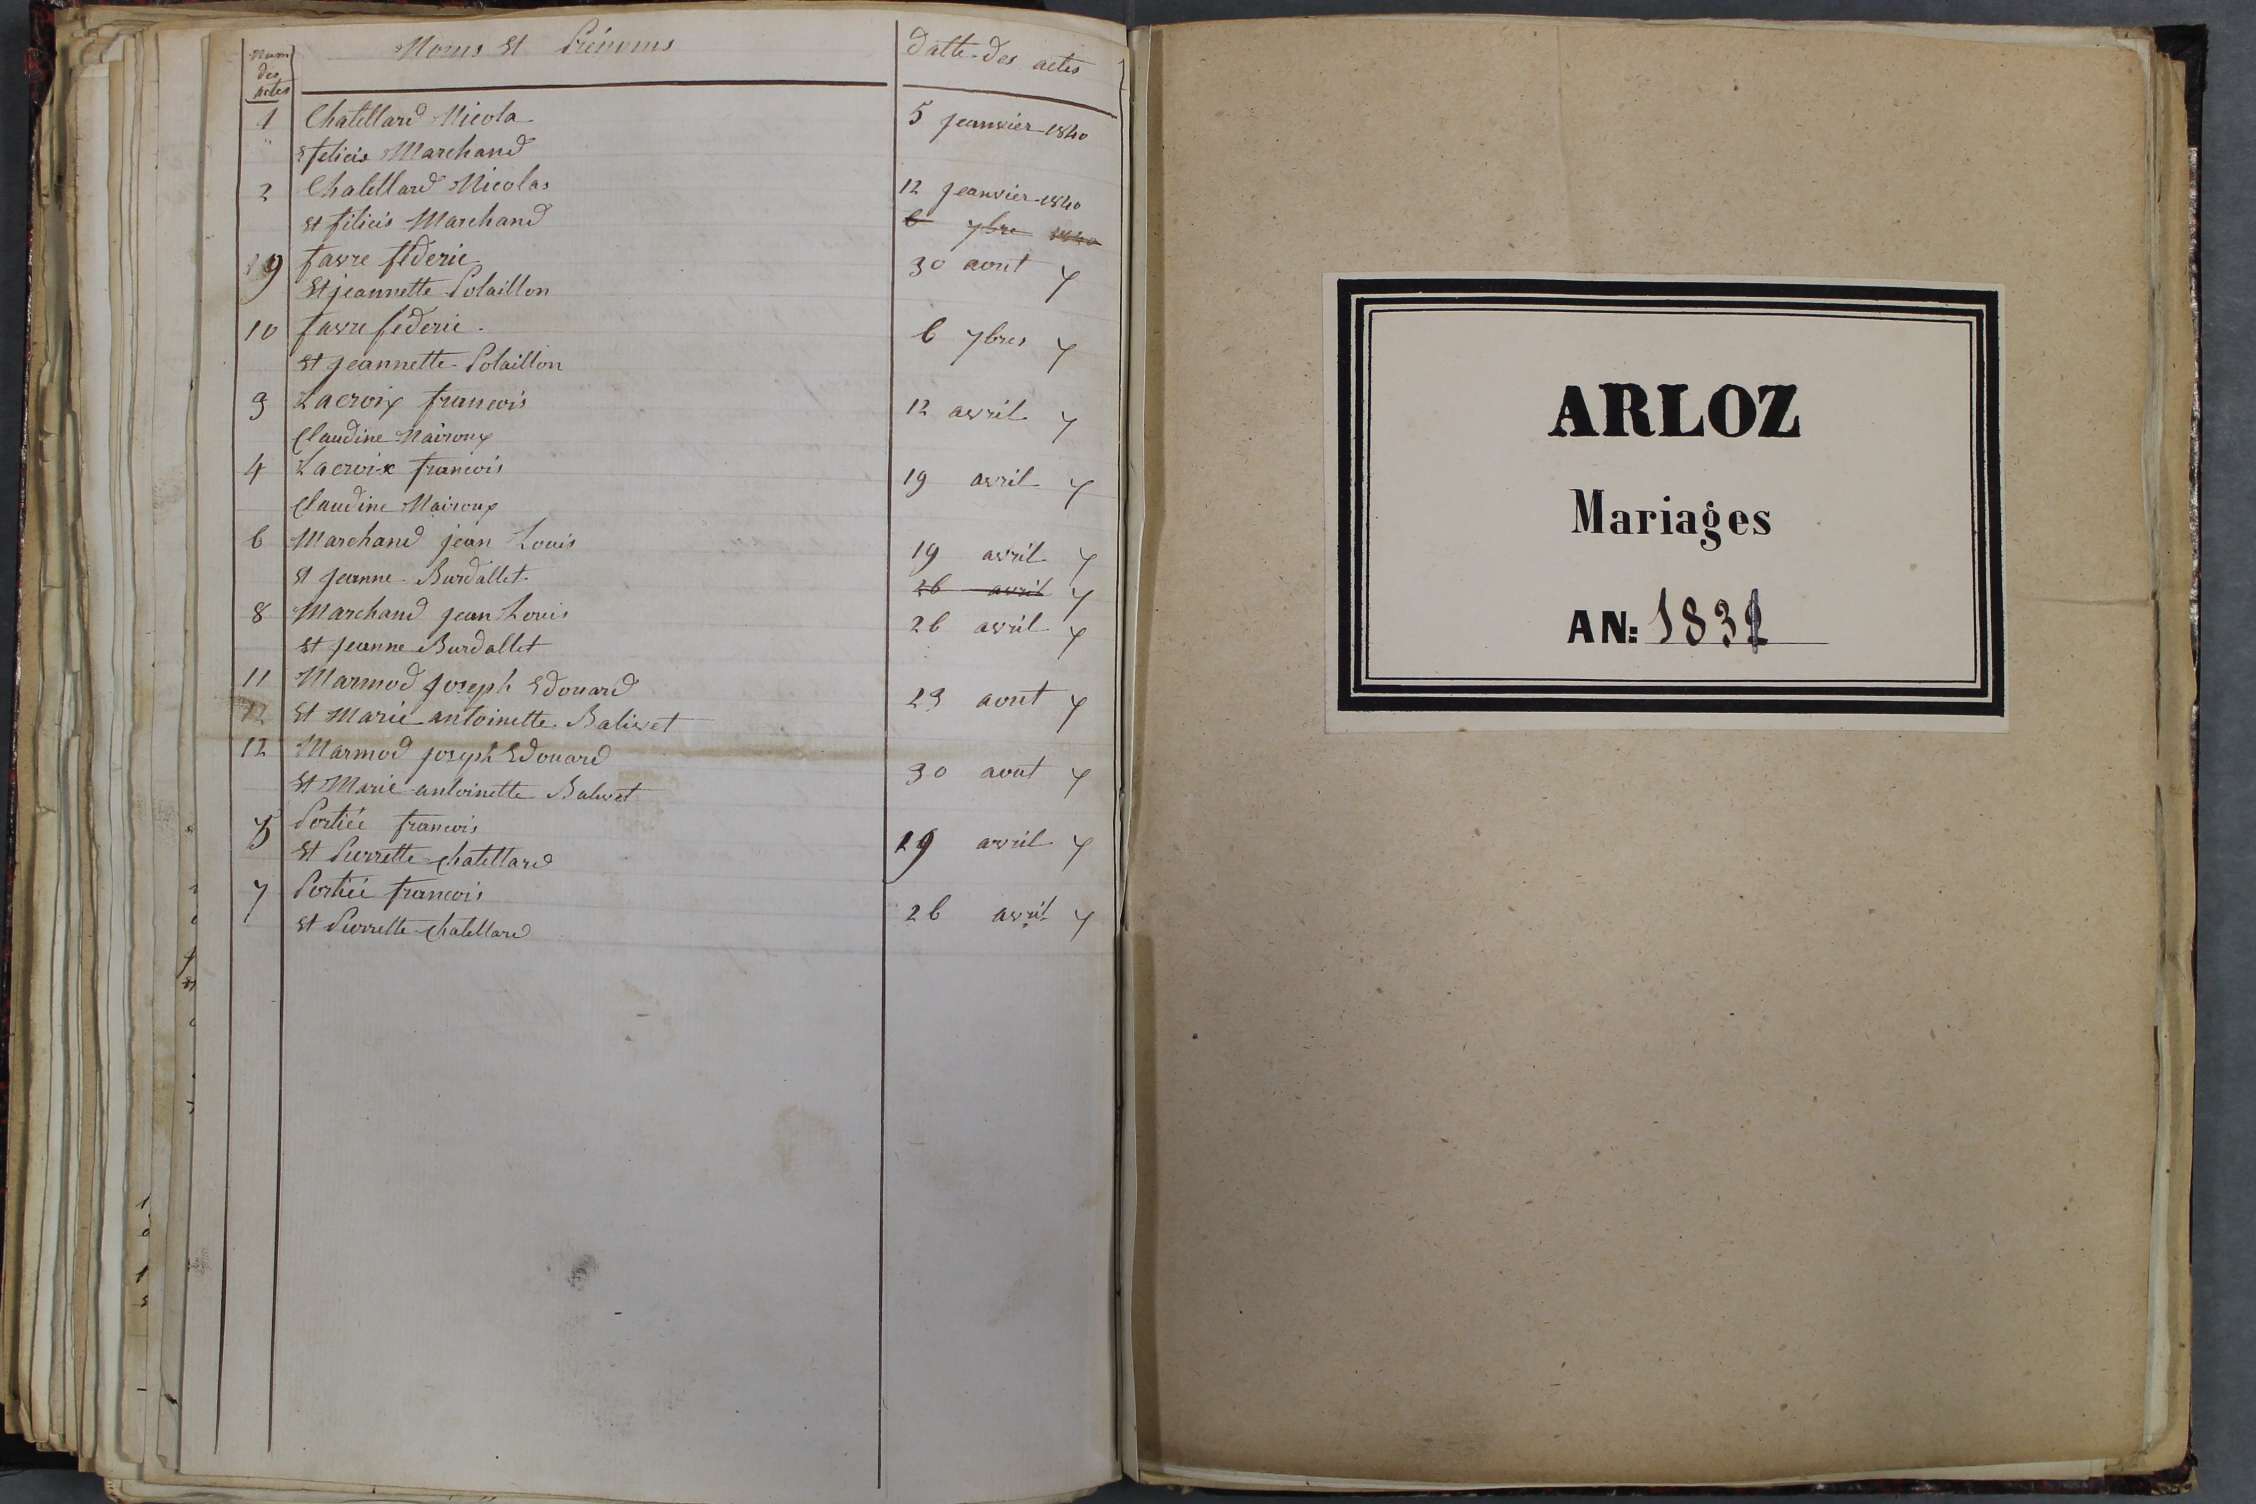 Num des actes Noms et Prénoms Datte des actes
1 Chatellard Nicola 5 jeanvier 1840
et felicis Marchand
2 Chatellard Nicolas 12 jeanvier 1840
et filicis Marchand 6 7bre 1840
9 favre féderic 30 aout
et jeannette Polaillon
10 favre féderic 6 7bres
et jeannette Polaillon
3 Lacroix francois 12 avril
Claudine Nairoux
4 Lacroix francois 19 avril
Claudine Nairoux
6 Marchand jean Louis 19 avril
et jeanne Burdallet 26 avril
8 Marchand jean Louis 26 avril
et jeanne Burdallet
11 Marmod joseph Edouard 23 aout
12 et Marie antoinette Balivet
12 Marmod joseph Edouard 30 aout
et Marie antoinette Balivet
5 Portiée francois 19 avril
et Pierrette chatellard
7 Portiée francois 26 avril
et Pierrette chatellard
ARLOZ
Mariages
AN: 183